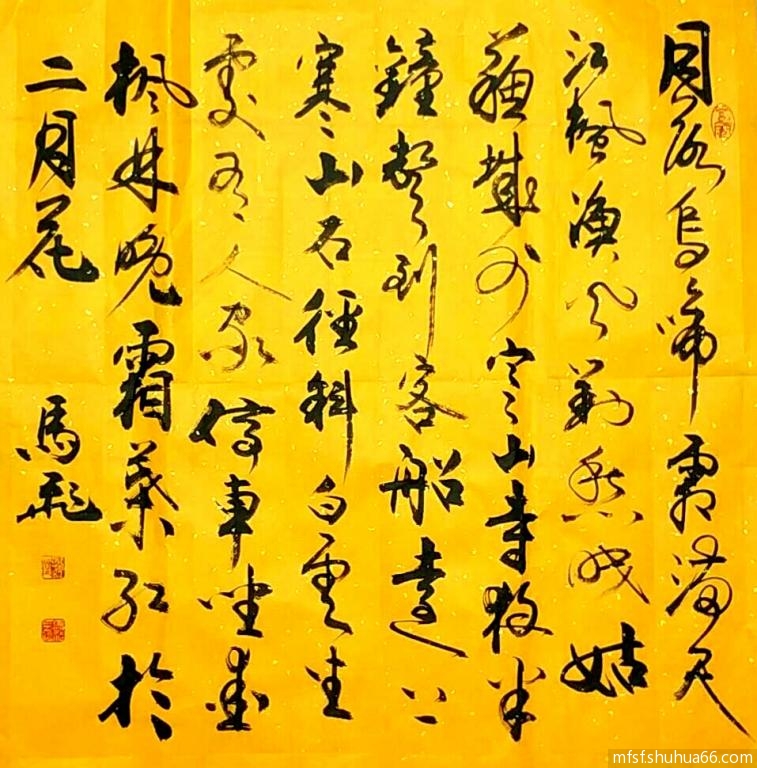 月落烏啼霜滿天
江楓漁火對愁眠姑
蘇城外寒山寺夜半
鐘聲到客船遠上
寒山石徑斜白雲生
處有人家停車坐愛
楓林晚霜葉紅於
二月花 馬飛
mfsf.shuhua66.com